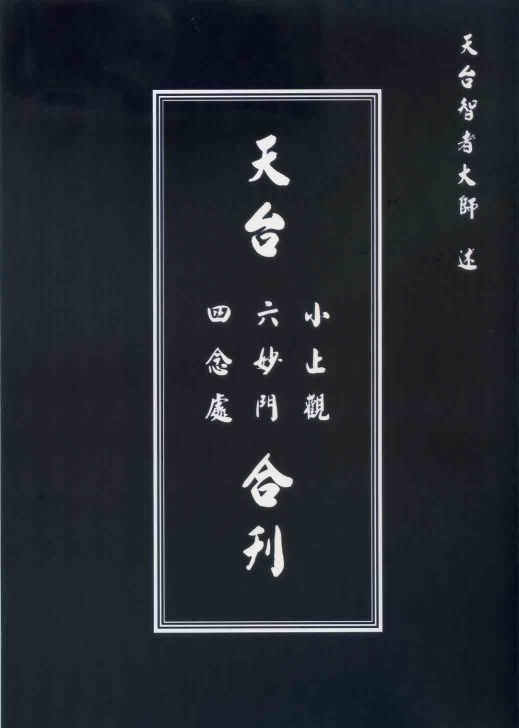 天台智者大師 述
天台
小止觀
六妙門
四念處
合刊